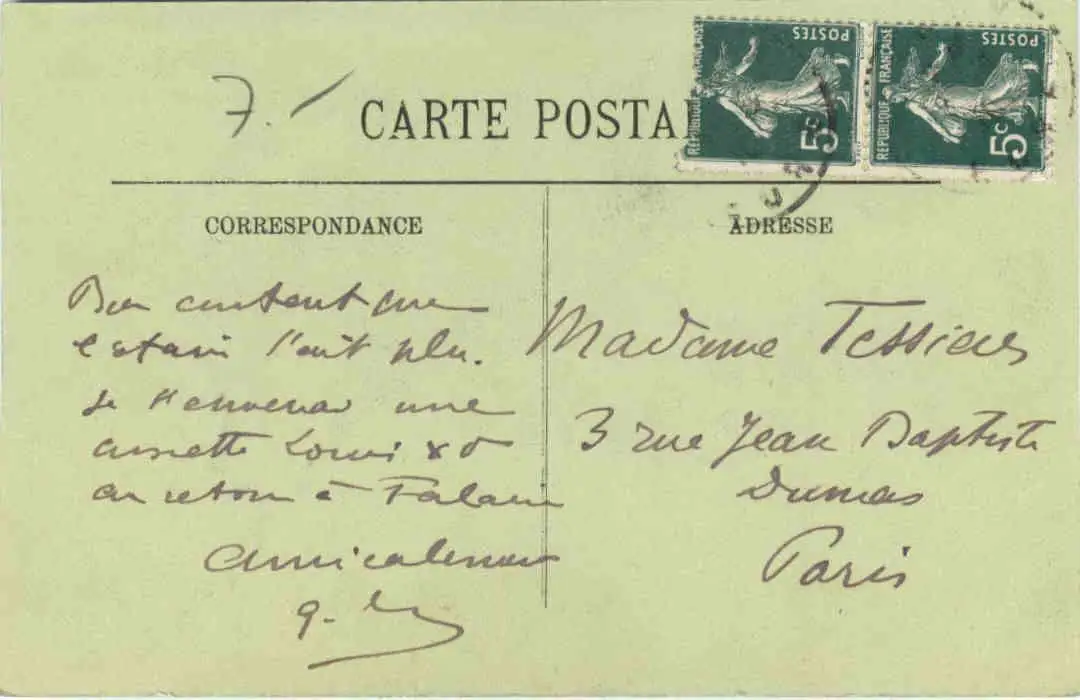 7.
CARTE POSTA
RÉPUBLIQUE FRANÇAISE
POSTES
5c
RÉPUBLIQUE FRANÇAISE
POSTES
5c
CORRESPONDANCE
ADRESSE
Bien content que
l'ait plu.
Je t'enverrai une
assiette Louis
au retour à
amicalement
Madame Tessier
3 rue Jean Baptiste
Dumas
Paris